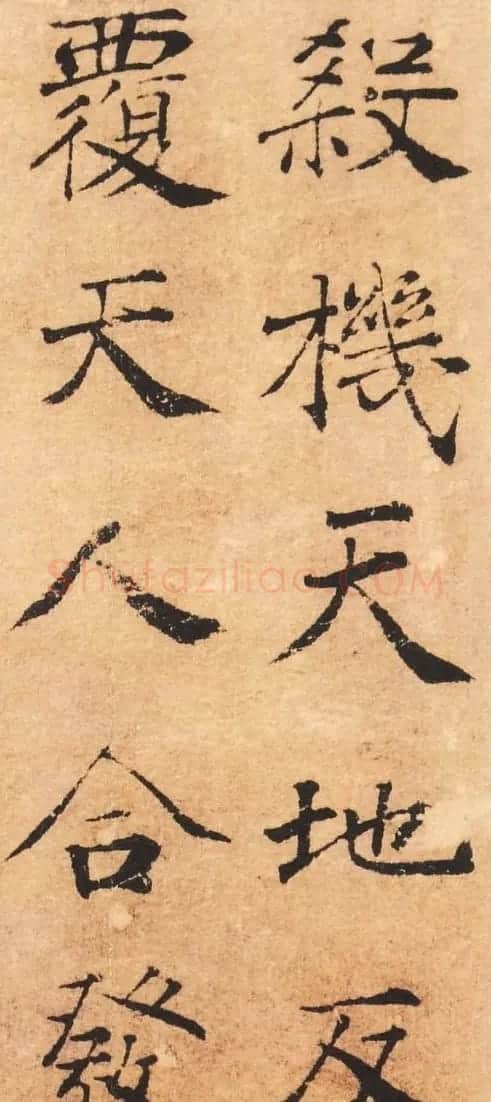 殺機天地反
覆天人合發
Shufaziliao.COM